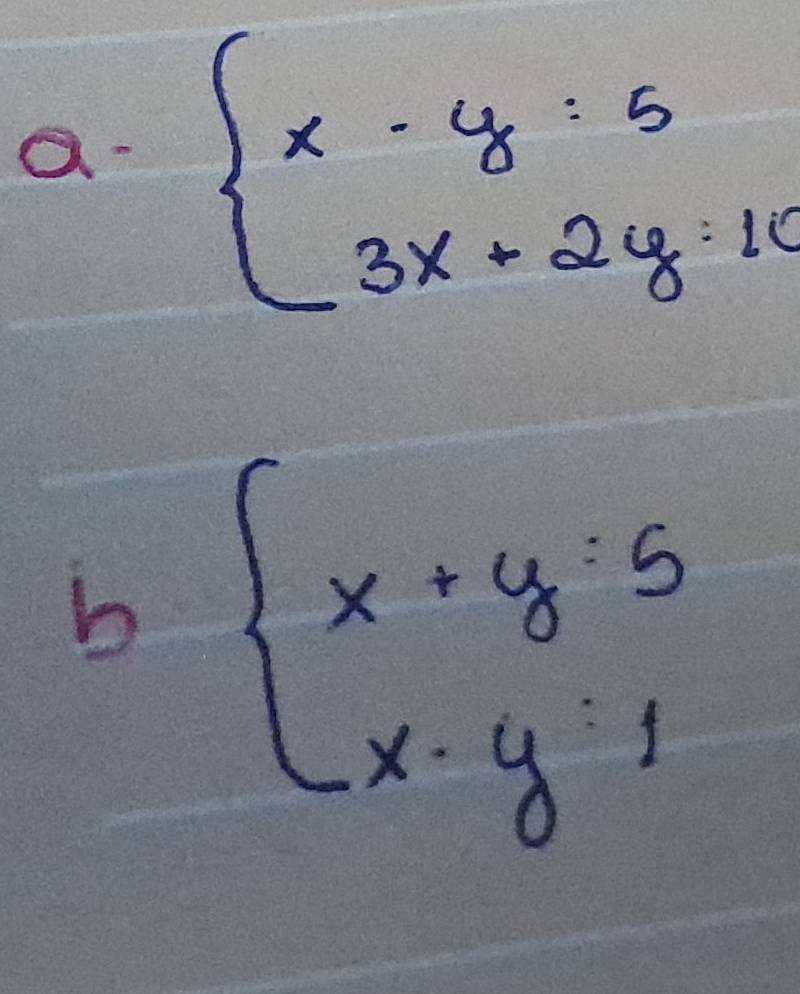 a- x - y : 5
3x + 2y : 10
b x + y : 5
x - y : 1